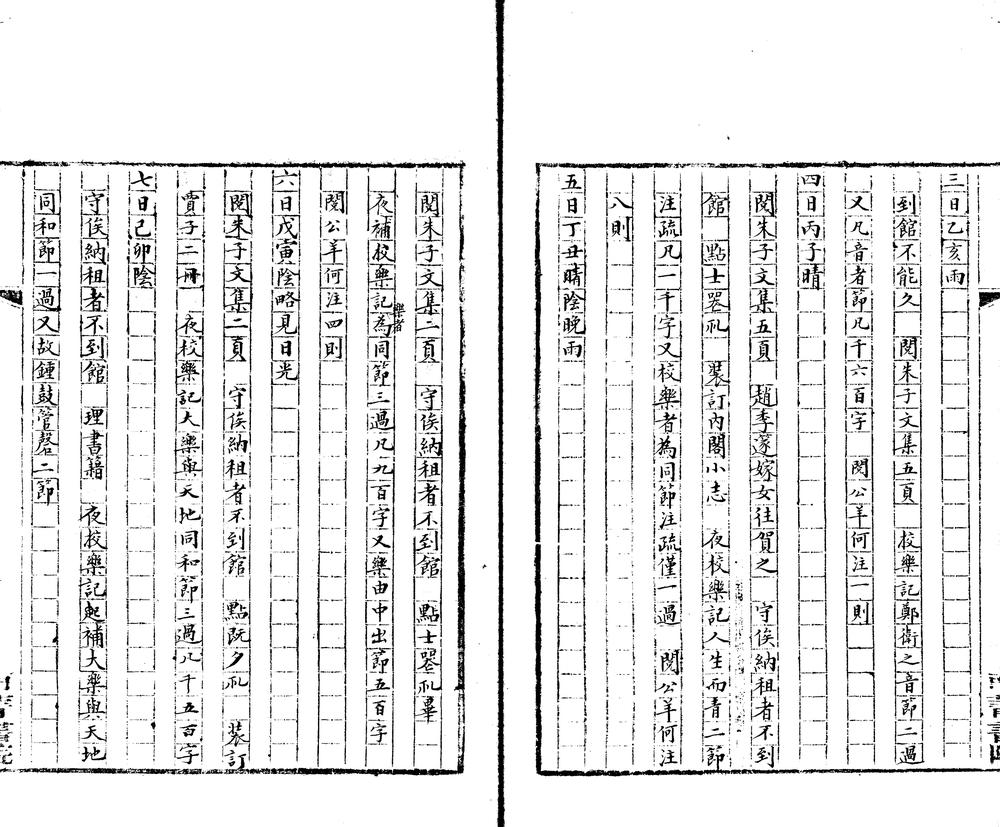 三日乙亥雨
到館不能久　閱朱子文集五頁　校樂記鄭衛之音節二過
又凡音者節凡千六百字　閱公羊何注一則
四日丙子晴
閱朱子文集五頁　趙季邃嫁女往賀之　守俟納租者不到
館　點士器礼　裝訂內閣小志　夜校樂記人生而青二節
注疏凡一千字又校樂者為同節注疏僅一過　閱公羊何注
八則
五日丁丑晴陰晚雨
閱朱子文集二頁　守俟納租者不到館　點士器礼畢
夜補校樂記樂者為同節三過凡九百字又樂由中出節五百字
閱公羊何注四則
六日戊寅陰略見日光
閱朱子文集二頁　守俟納租者不到館　點既夕礼　裝訂
賈子二冊　夜校樂記大樂與天地同和節三過凡千五百字
七日己卯陰
守俟納租者不到館　理書籍　夜校樂記起補大樂與天地
同和節一過又故鍾鼓管磬二節